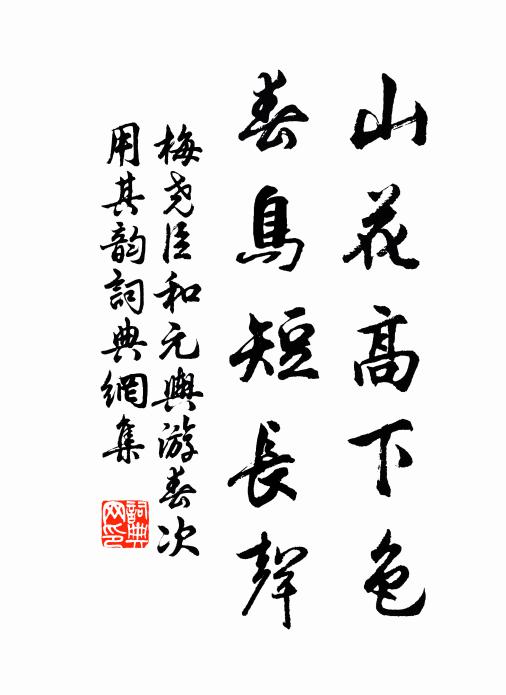 山花高下色
春鳥短長聲
梅尧臣和元輿游春次
用其韵詞典網集
詞典
网印